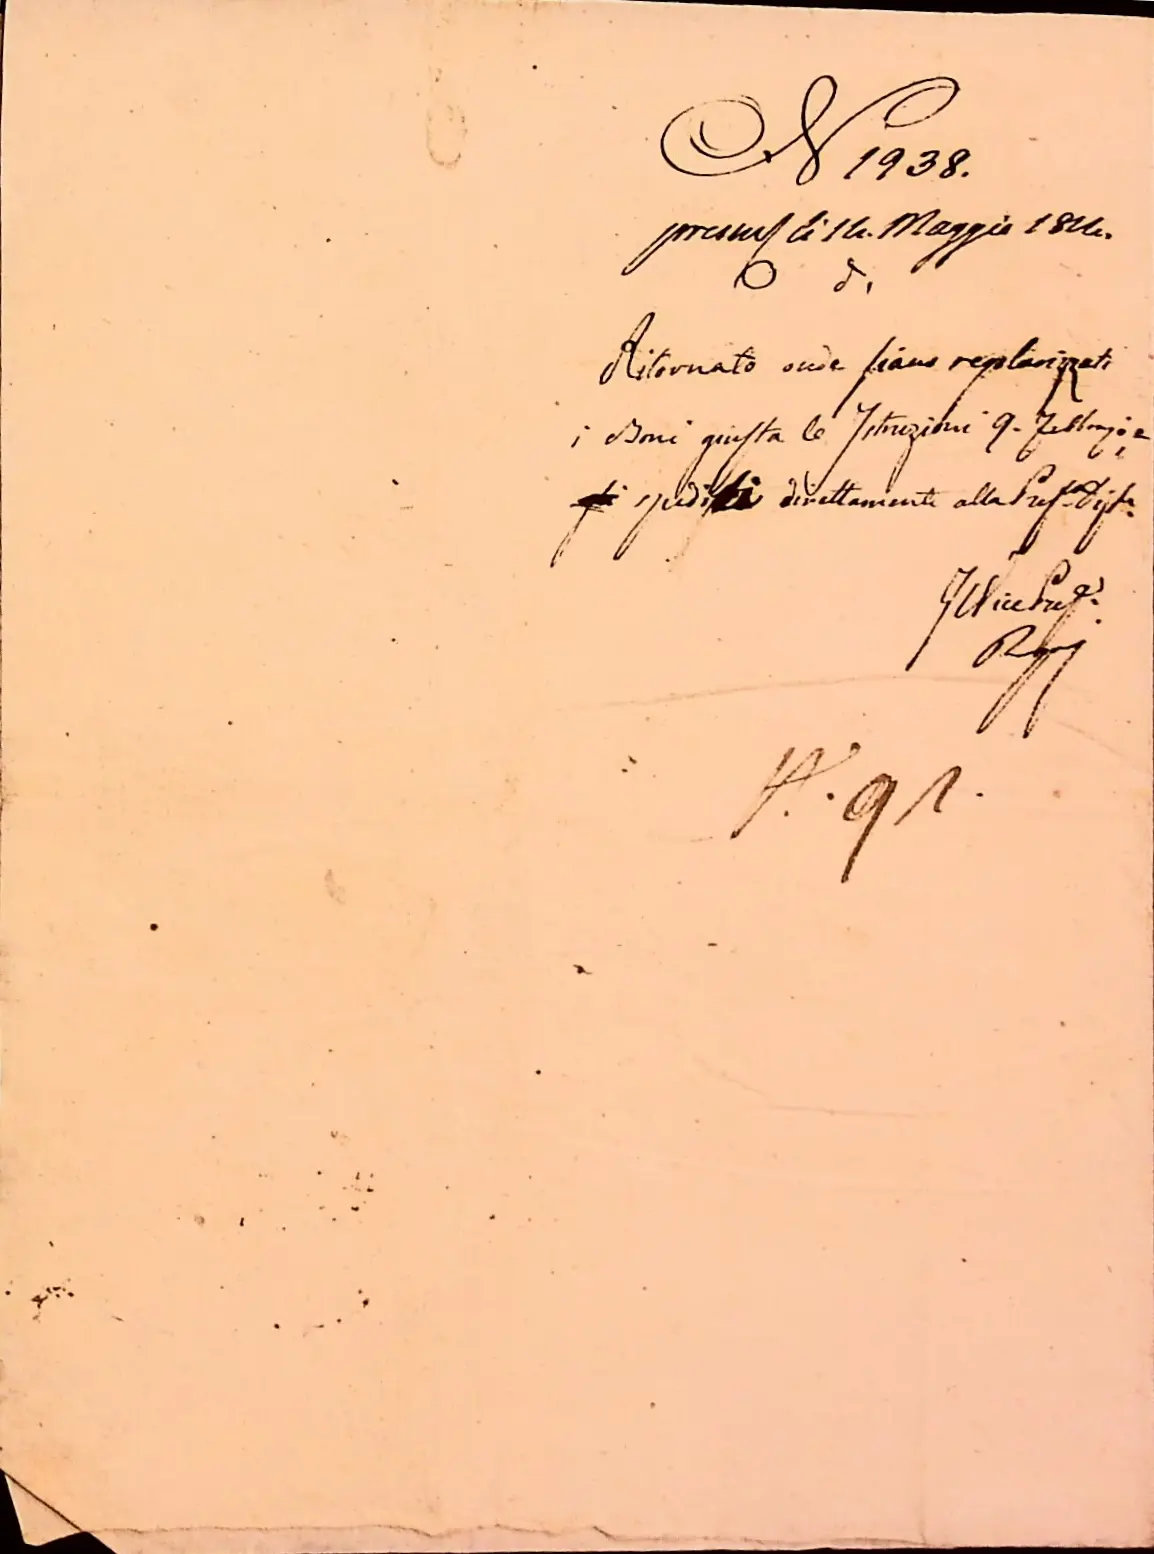 N 1938.
present li 14. Maggio 1814.
O d,
Ritornato onde siano regolarizzati
i Boni giusta le Istruzioni 9. Febbrajo e
spediti direttamente alla Pref.a Dip.le
Il Vice Pref.o
N.o 91.